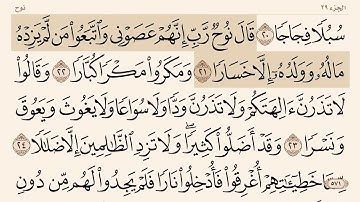 الجزء ٢٩ نوح
سُبُلًا فِجَاجًا ٢٠ قَالَ نُوحٌ رَّبِّ إِنَّهُمْ عَصَوْنِي وَاتَّبَعُوا مَن لَّمْ يَزِدْهُ
مَالُهُ وَوَلَدُهُ إِلَّا خَسَارًا ٢١ وَمَكَرُوا مَكْرًا كُبَّارًا ٢٢ وَقَالُوا
لَا تَذَرُنَّ آلِهَتَكُمْ وَلَا تَذَرُنَّ وَدًّا وَلَا سُوَاعًا وَلَا يَغُوثَ وَيَعُوقَ
وَنَسْرًا ٢٣ وَقَدْ أَضَلُّوا كَثِيرًا ۖ وَلَا تَزِدِ الظَّالِمِينَ إِلَّا ضَلَالًا ٢٤
مِّمَّا خَطِيئَاتِهِمْ أُغْرِقُوا فَأُدْخِلُوا نَارًا فَلَمْ يَجِدُوا لَهُم مِّن دُونِ
٥٧١